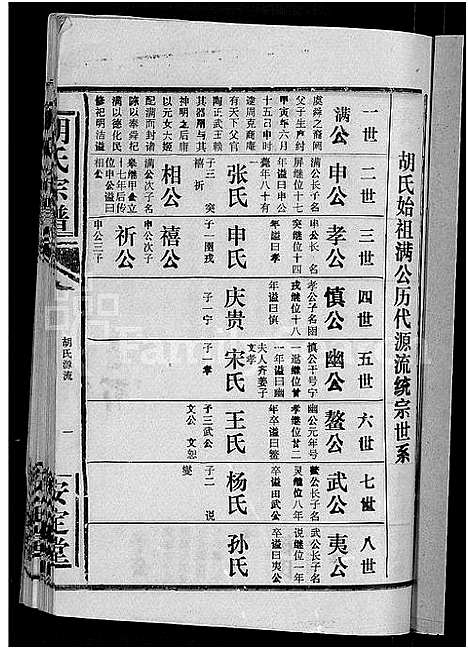 胡氏始祖满公历代源流统宗世系
一世
满公
虞舜之裔阏
父子生卢封
甲寅年六月
十五己申时
逮周克商庸
有天下父官
陶正武王赖
其器用与其
神明之后
以元女大姬
配满而封诸
陈以奉舜祀
满以德化民
修祀明洁谥
二世
申公
满公长子名
屏继位十七
年谥曰申公
薨年八十有
张氏
子三 突
禧 祈
相公
满公次子名
皋继甲公立
十七年后传
位申公谥曰
相公
三世
孝公
申公长 名
突继位十四
年谥曰孝
申氏
子一 圉戎
禧公
申公次子
祈公
申公三子
四世
慎公
孝公子名圉
戎继位十八
年谥曰慎
庆贵
子一 宁
五世
幽公
慎公子号宁
一退继位廿
一年谥曰幽
夫人齐姜子
文孝
宋氏
子一 孝
六世
釐公
幽公元年号
孝继位廿二
年卒谥曰釐
王氏
子三武公
文公 文恕
七世
武公
釐公长子名
灵继位八年
卒谥由武公
杨氏
子二 说
燮
八世
夷公
武公长子名
说继位一年
卒谥曰夷公
孙氏
胡氏宗谱
胡氏源流
一
安定堂